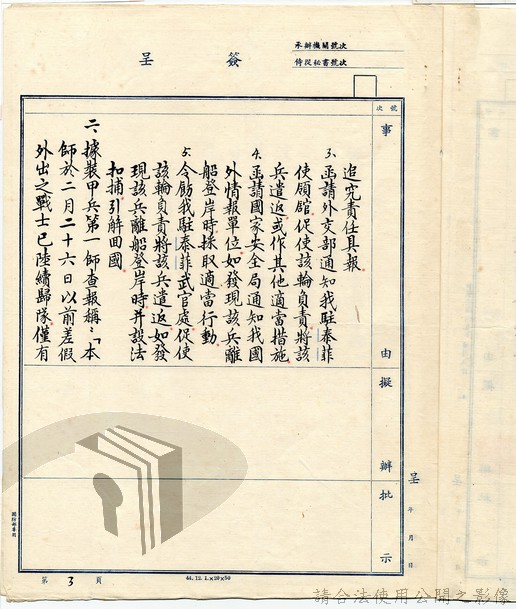 承辦機關號次
侍從秘書號次
簽呈
號次
事由
擬辦
批示
追究責任具報
3.函請外交部通知我駐泰菲
使領館促使該輪負責將該
兵遣返或作其他適當措施
4.函請國家安全局通知我國
外情報單位如發現該兵離
船登岸時採取適當行動
5.令飭我駐泰菲武官處促使
該輪負責將該兵遣返如發
現該兵離船登岸時并設法
扣捕引解回國
二、據裝甲兵第一師查報稱:「本
師於二月二十六日以前差假
外出之戰士已陸續歸隊僅有
呈 年 月 日
第 3 頁
44. 12. 1.×20×50
請合法使用公開之影像